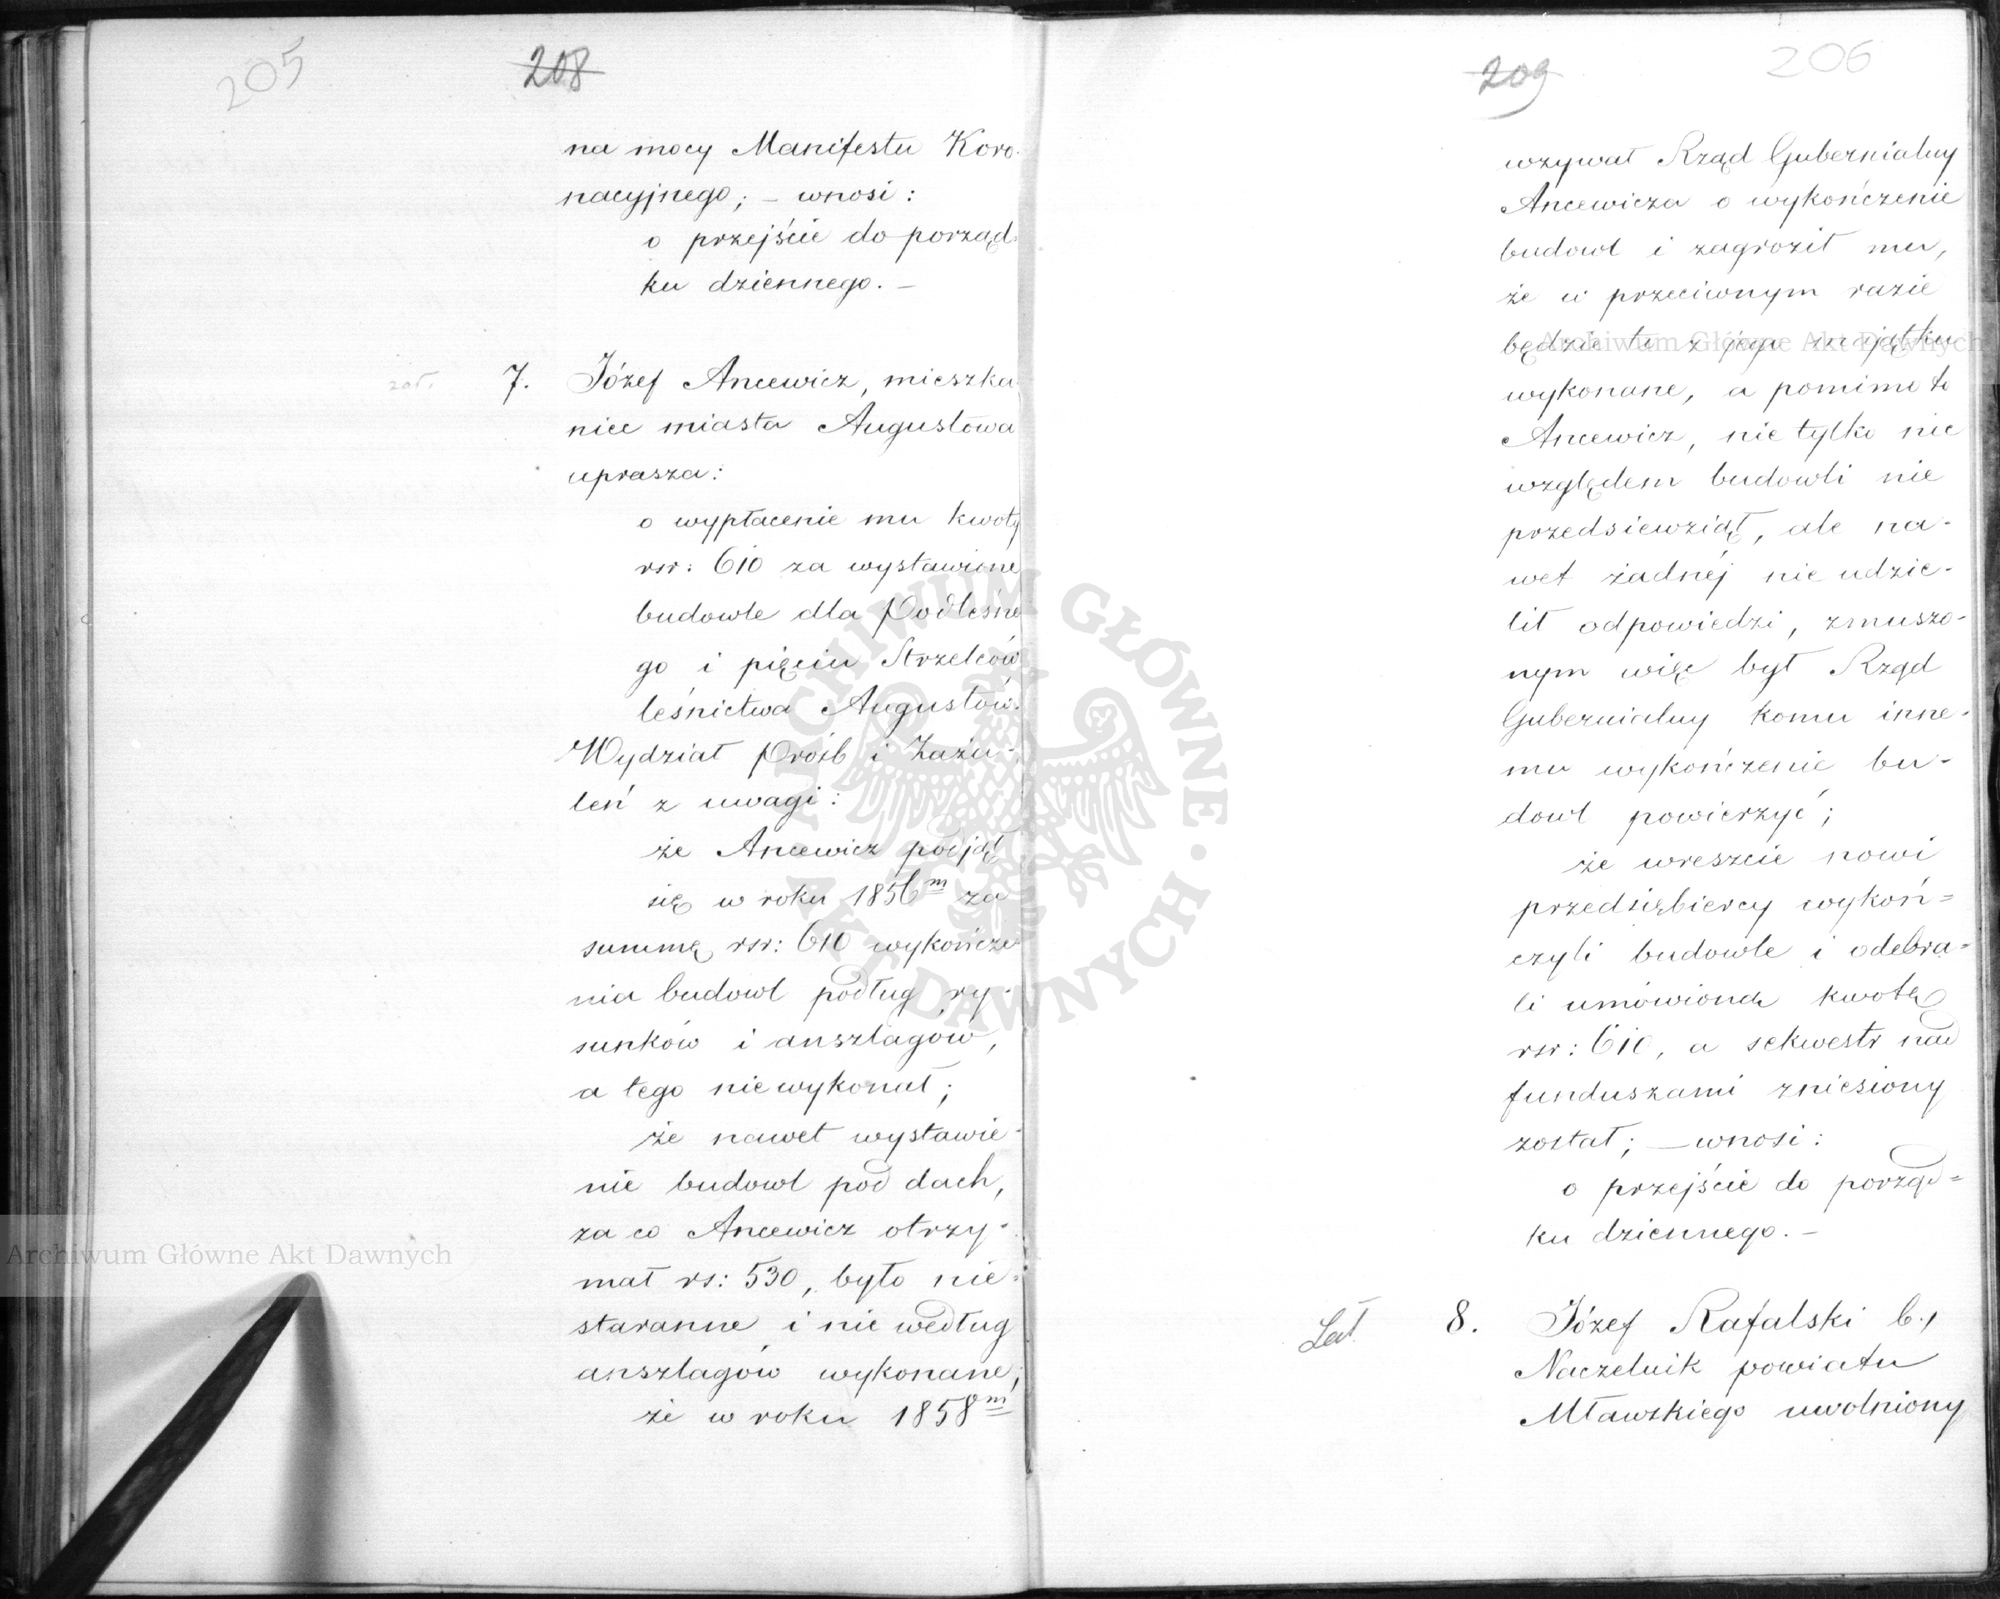 205
208
na mocy Manifestu Koro-
nacyjnego; – wnosi:
o przejście do porząd-
ku dziennego. –
7. Józef Ancewicz, mieszka-
niec miasta Augustowa
uprasza:
o wypłacenie mu kwoty
rsr: 610 za wystawione
budowle dla Podleśne
go i pięciu Strzelców
leśnictwa Augustów.
Wydział Próśb i Zaża-
leń z uwagi:
że Ancewicz podjął
się w roku 1856m za
summę rsr: 610 wykończe
nia budowl podług ry-
sunków i anszlagów,
a tego niewykonał;
że nawet wystawie-
nie budowl pod dach,
za co Ancewicz otrzy-
mał rs: 530, było nie-
staranne i nie według
anszlagów wykonane;
że w roku 1858m
209
206
wzywał Rząd Gubernialny
Ancewicza o wykończenie
budowl i zagroził mu,
że w przeciwnym razie
będzie to z jego majątku
wykonane, a pomimo to
Ancewicz, nie tylko nic
względem budowli nie
przedsiewziął, ale na-
wet żadnéj nie udzie-
lił odpowiedzi, zmuszo-
nym więc był Rząd
Gubernialny komu inne-
mu wykończenie bu-
dowl powierzyć;
że wreszcie nowi
przedsiębiercy wykoń=
czyli budowle i odebra=
li umówioną kwotę
rsr: 610, a sekwestr nad
funduszami zniesiony
został; – wnosi:
o przejście do porząd=
ku dziennego. –
8. Józef Rafalski b.,
Naczelnik powiatu
Mławskiego uwolniony
Archiwum Główne Akt Dawnych
Archiwum Główne Akt Dawnych
ARCHIWUM GŁÓWNE · AKT DAWNYCH ·